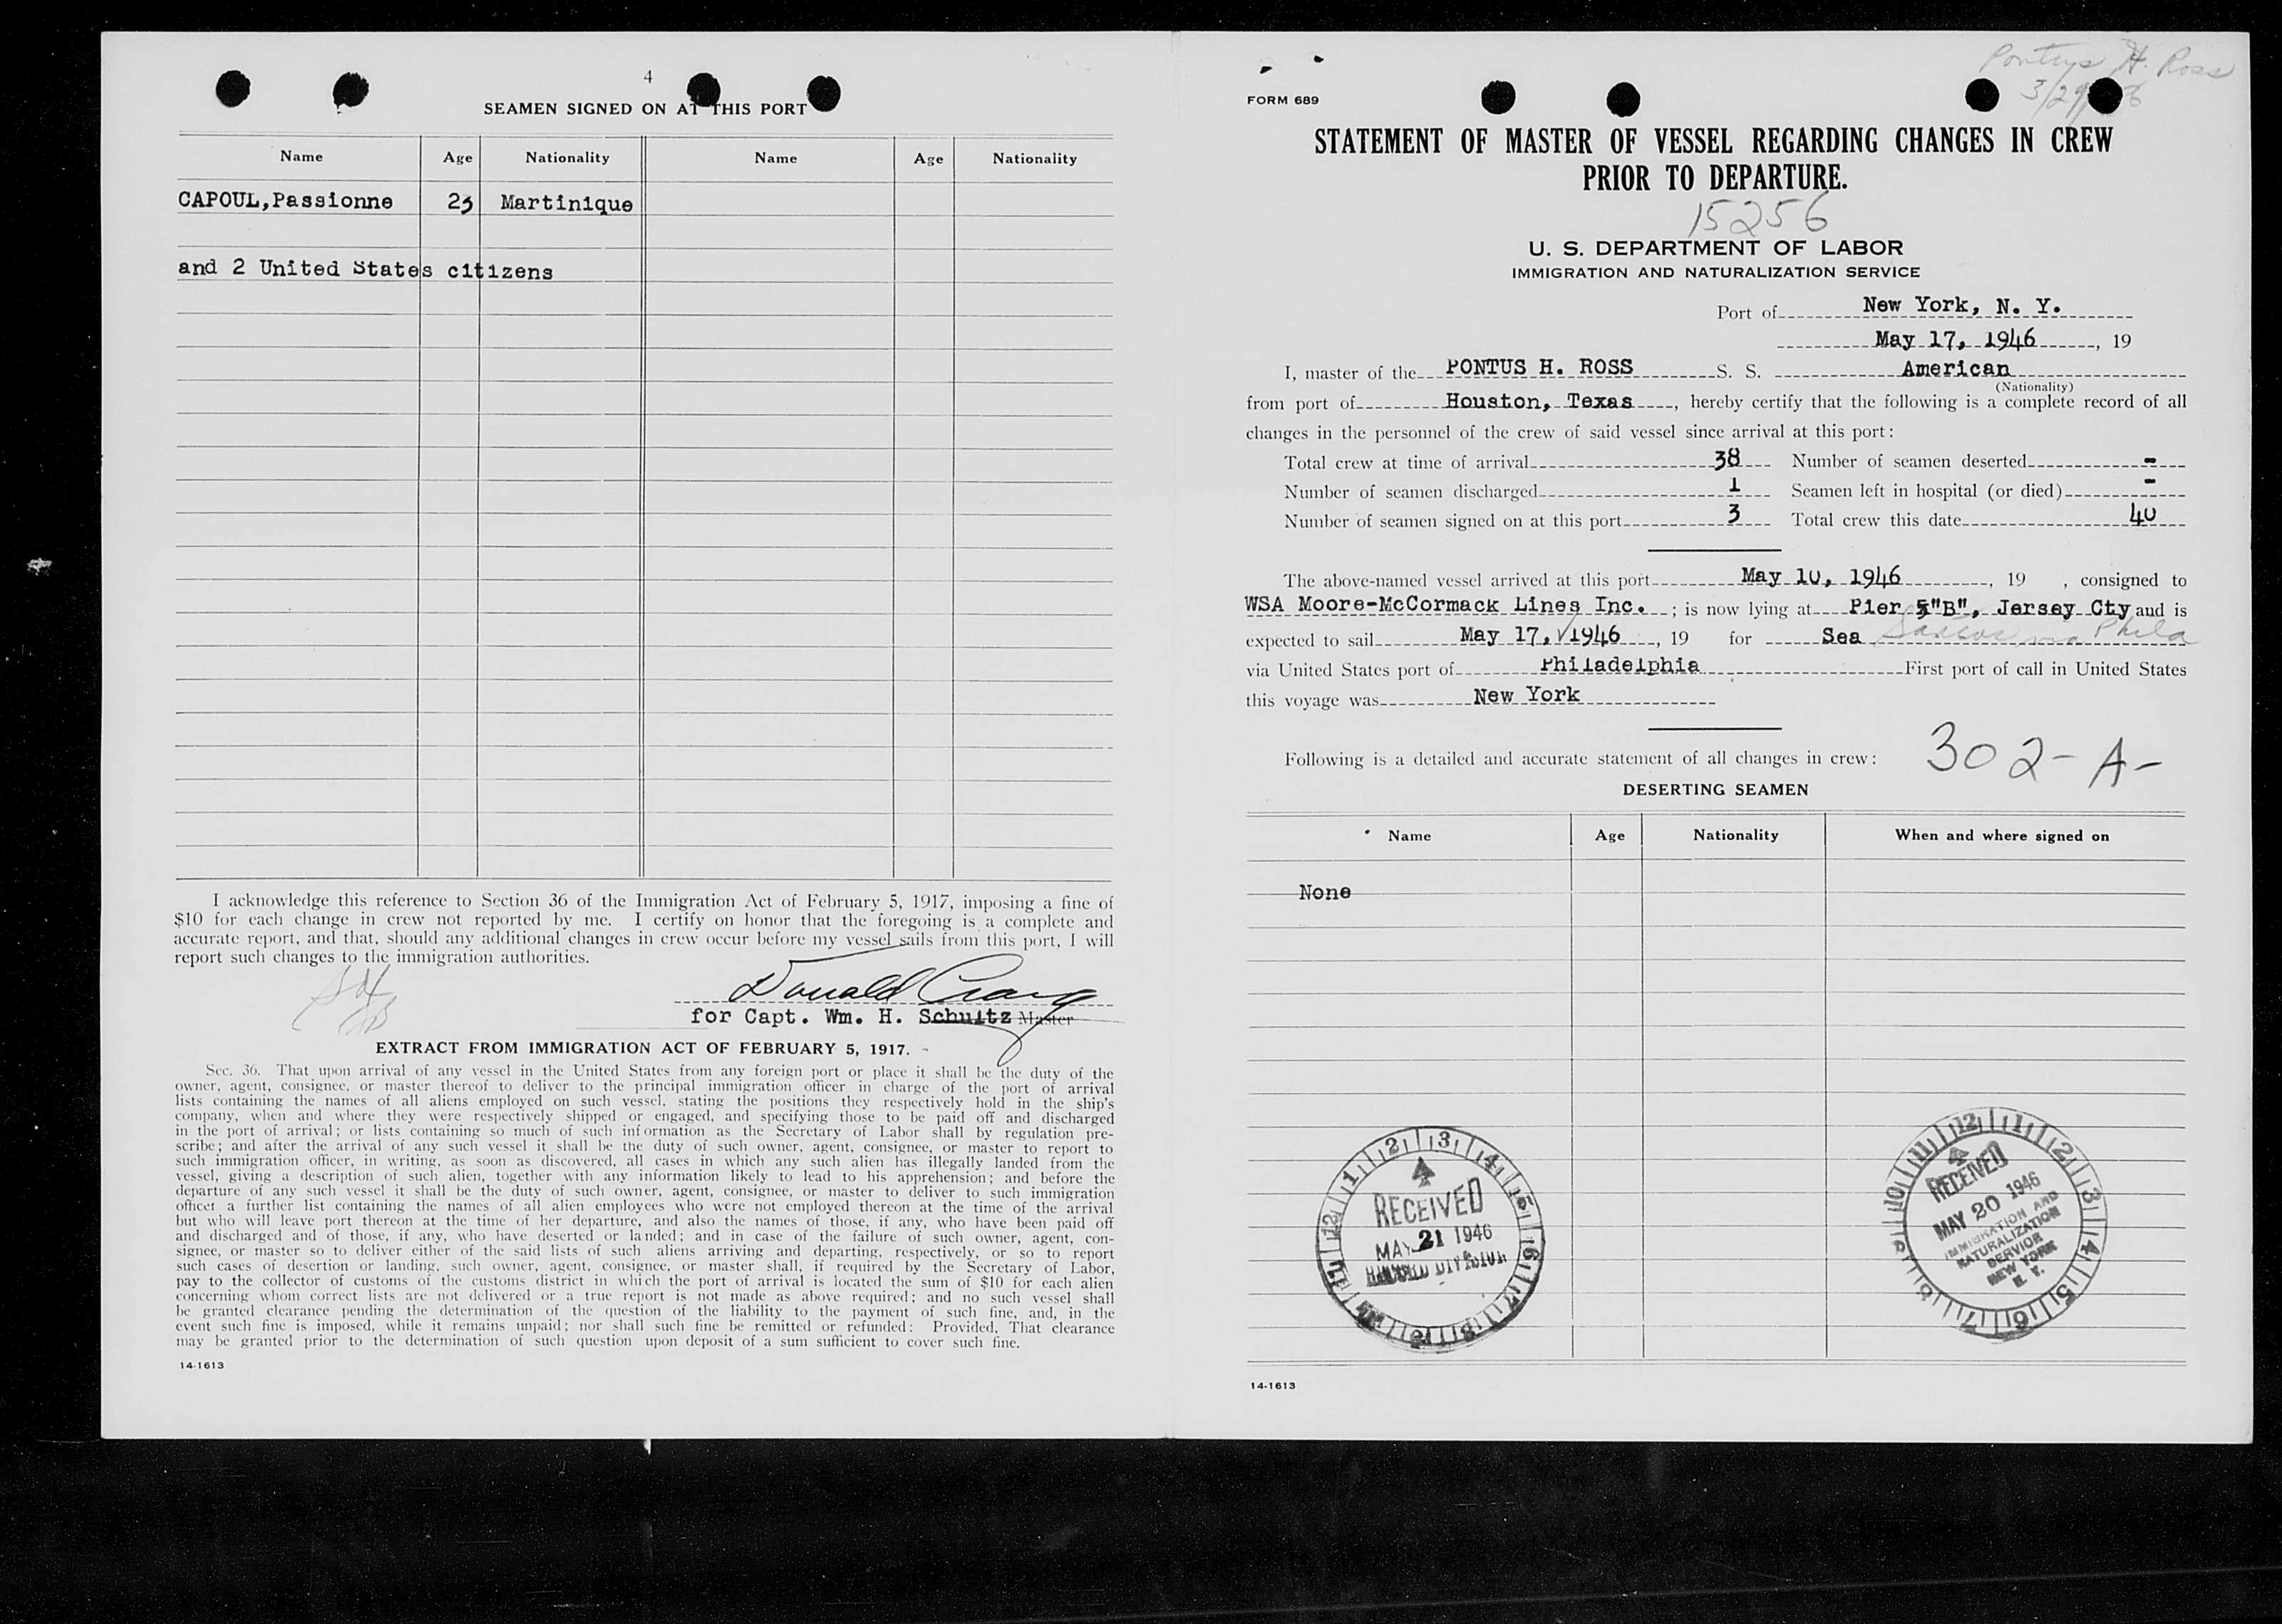 4
SEAMEN SIGNED ON AT THIS PORT
Name Age Nationality Name Age Nationality
CAPOUL,Passionne 23 Martinique
and 2 United States citizens
I acknowledge this reference to Section 36 of the Immigration Act of February 5, 1917, imposing a fine of
$10 for each change in crew not reported by me. I certify on honor that the foregoing is a complete and
accurate report, and that, should any additional changes in crew occur before my vessel sails from this port, I will
report such changes to the immigration authorities.
Donald Craig
for Capt. Wm. H. Schultz Master
EXTRACT FROM IMMIGRATION ACT OF FEBRUARY 5, 1917.
Sec. 36. That upon arrival of any vessel in the United States from any foreign port or place it shall be the duty of the
owner, agent, consignee, or master thereof to deliver to the principal immigration officer in charge of the port of arrival
lists containing the names of all aliens employed on such vessel, stating the positions they respectively hold in the ship's
company, when and where they were respectively shipped or engaged, and specifying those to be paid off and discharged
in the port of arrival; or lists containing so much of such information as the Secretary of Labor shall by regulation pre-
scribe; and after the arrival of any such vessel it shall be the duty of such owner, agent, consignee, or master to report to
such immigration officer, in writing, as soon as discovered, all cases in which any such alien has illegally landed from the
vessel, giving a description of such alien, together with any information likely to lead to his apprehension; and before the
departure of any such vessel it shall be the duty of such owner, agent, consignee, or master to deliver to such immigration
officer a further list containing the names of all alien employees who were not employed thereon at the time of the arrival
but who will leave port thereon at the time of her departure, and also the names of those, if any, who have been paid off
and discharged and of those, if any, who have deserted or landed; and in case of the failure of such owner, agent, con-
signee, or master so to deliver either of the said lists of such aliens arriving and departing, respectively, or so to report
such cases of desertion or landing, such owner, agent, consignee, or master shall, if required by the Secretary of Labor,
pay to the collector of customs of the customs district in which the port of arrival is located the sum of $10 for each alien
concerning whom correct lists are not delivered or a true report is not made as above required; and no such vessel shall
be granted clearance pending the determination of the question of the liability to the payment of such fine, and, in the
event such fine is imposed, while it remains unpaid; nor shall such fine be remitted or refunded: Provided, That clearance
may be granted prior to the determination of such question upon deposit of a sum sufficient to cover such fine.
14-1613
Pontus H. Ross
FORM 689
STATEMENT OF MASTER OF VESSEL REGARDING CHANGES IN CREW
PRIOR TO DEPARTURE.
15256
U. S. DEPARTMENT OF LABOR
IMMIGRATION AND NATURALIZATION SERVICE
Port of New York, N. Y.
May 17, 1946, 19
I, master of the PONTUS H. ROSS S. S. American
(Nationality)
from port of Houston, Texas, hereby certify that the following is a complete record of all
changes in the personnel of the crew of said vessel since arrival at this port:
Total crew at time of arrival 38 Number of seamen deserted -
Number of seamen discharged 1 Seamen left in hospital (or died) -
Number of seamen signed on at this port 3 Total crew this date 40
The above-named vessel arrived at this port May 10, 1946, 19 , consigned to
WSA Moore-McCormack Lines Inc. ; is now lying at Pier "B", Jersey Cty and is
expected to sail May 17, 1946, 19 for Sea Santos via Phila
via United States port of Philadelphia First port of call in United States
this voyage was New York
Following is a detailed and accurate statement of all changes in crew:
302-A-
DESERTING SEAMEN
Name Age Nationality When and where signed on
None
12 1 2 3 4 5 6 7 8 9 10 11
RECEIVED
MAY 21 1946
RECORD DIVISION
12 1 2 3 4 5 6 7 8 9 10 11
RECEIVED
MAY 20 1946
IMMIGRATION AND
NATURALIZATION
SERVICE
NEW YORK
N. Y.
14-1613